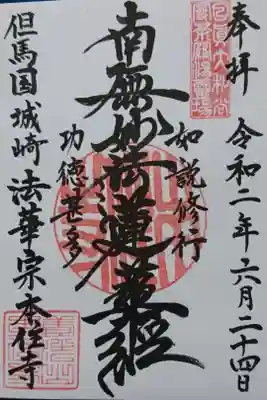 奉拝
令和二年六月二十四日
如説修行
南無妙法蓮華経
功徳甚多
但馬国城崎 法華宗本住寺